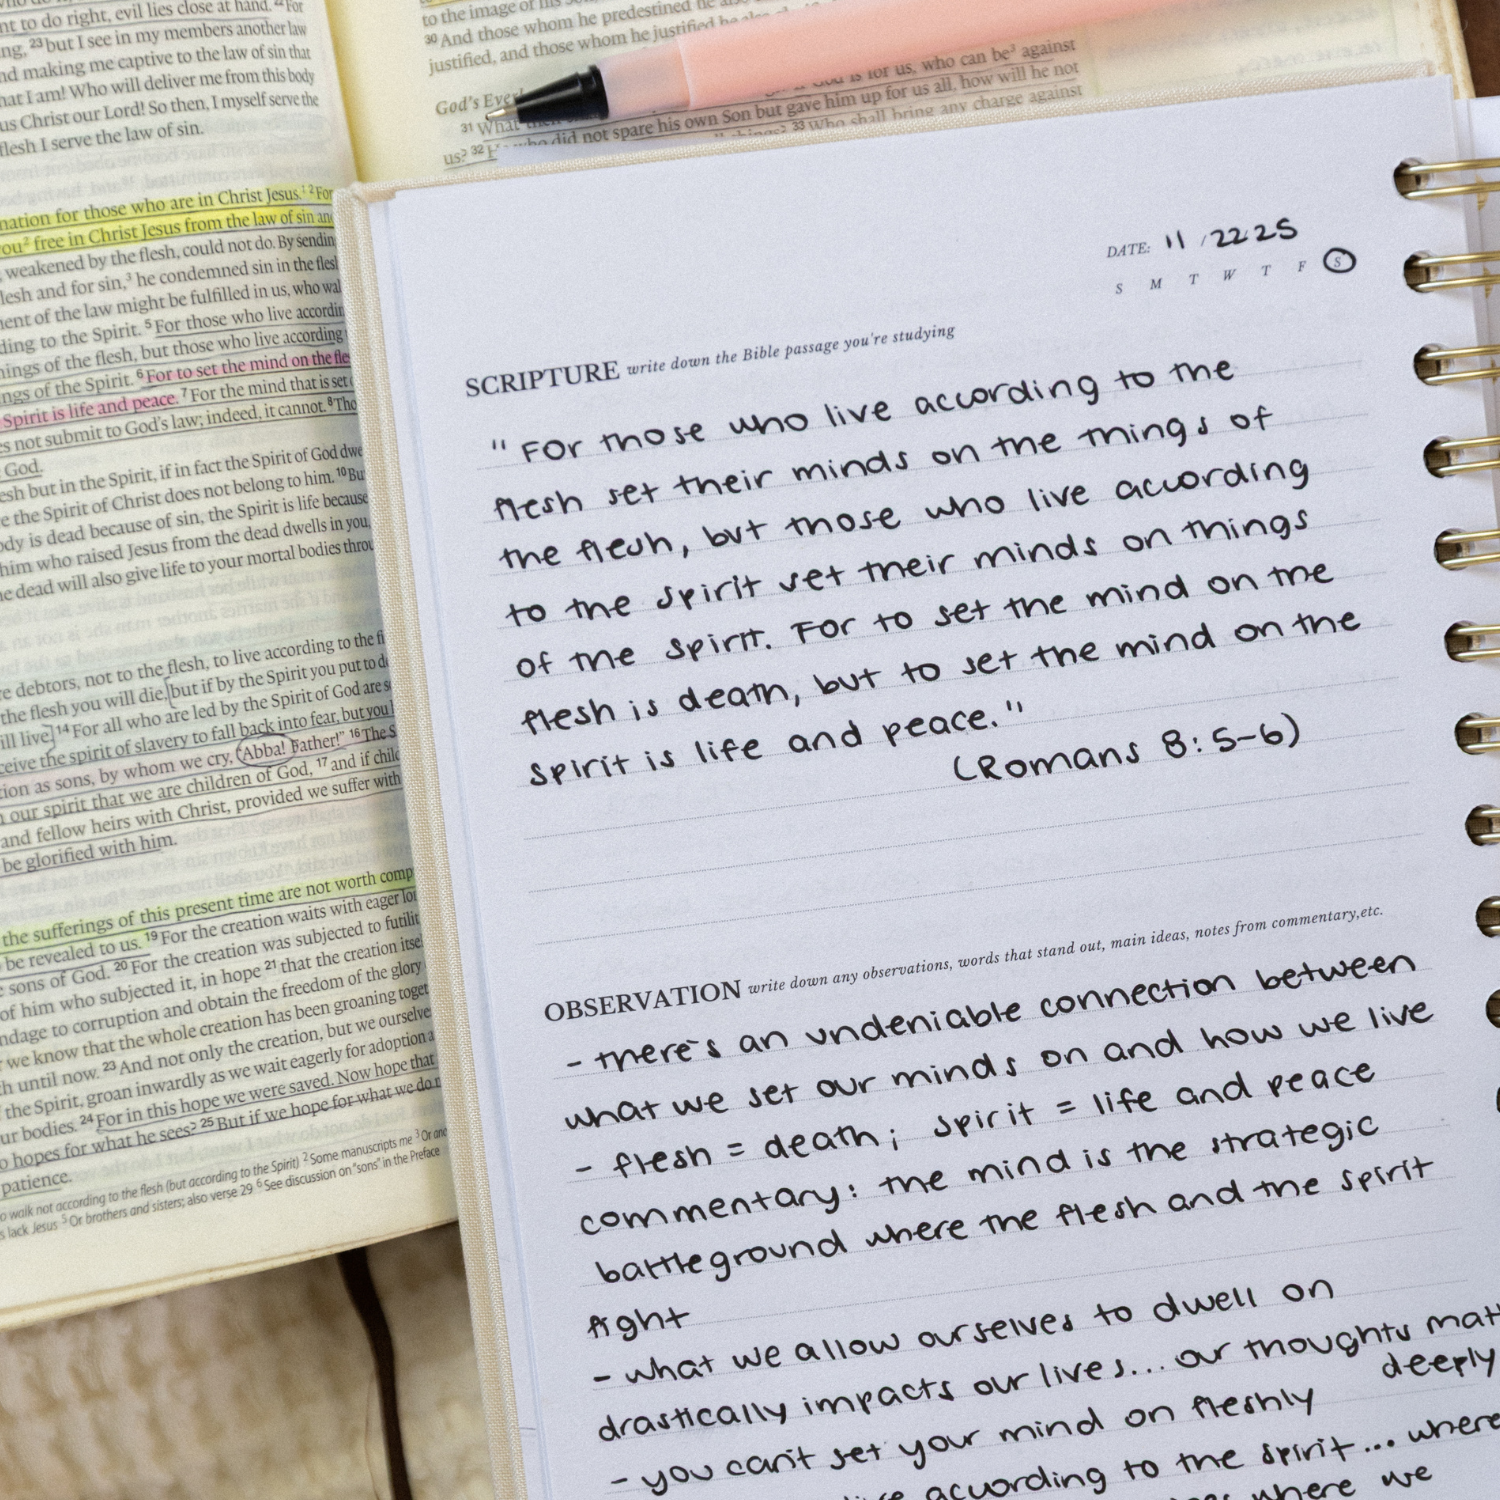 nt to do right, evil lies close at hand. 22 For
ng, 23 but I see in my members another law
nd making me captive to the law of sin that
hat I am! Who will deliver me from this body
us Christ our Lord! So then, I myself serve the
flesh I serve the law of sin.
nation for those who are in Christ Jesus.1 2 For
you2 free in Christ Jesus from the law of sin and
weakened by the flesh, could not do. By sending
lesh and for sin,3 he condemned sin in the flesh
ment of the law might be fulfilled in us, who wal
ding to the Spirit. 5 For those who live accordin
hings of the flesh, but those who live according
ngs of the Spirit. 6 For to set the mind on the fle
Spirit is life and peace. 7 For the mind that is set
es not submit to God's law; indeed, it cannot. 8 Tho
God.
esh but in the Spirit, if in fact the Spirit of God dwe
e the Spirit of Christ does not belong to him. 10 Bu
ody is dead because of sin, the Spirit is life because
him who raised Jesus from the dead dwells in you,
he dead will also give life to your mortal bodies throu
re debtors, not to the flesh, to live according to the fl
the flesh you will die, but if by the Spirit you put to de
ill live. 14 For all who are led by the Spirit of God are s
ceive the spirit of slavery to fall back into fear, but you
tion as sons, by whom we cry, "Abba! Father!" 16 The S
our spirit that we are children of God, 17 and if child
and fellow heirs with Christ, provided we suffer with
be glorified with him.
the sufferings of this present time are not worth comp
be revealed to us. 19 For the creation waits with eager lon
sons of God. 20 For the creation was subjected to futilit
of him who subjected it, in hope 21 that the creation itse
ndage to corruption and obtain the freedom of the glory
we know that the whole creation has been groaning toget
h until now. 23 And not only the creation, but we ourselve
the Spirit, groan inwardly as we wait eagerly for adoption a
ur bodies. 24 For in this hope we were saved. Now hope that
o hopes for what he sees? 25 But if we hope for what we do n
patience.
o walk not according to the flesh (but according to the Spirit) 2 Some manuscripts me 3 Or and
s lack Jesus 5 Or brothers and sisters; also verse 29 6 See discussion on "sons" in the Preface
to the image of his
30 And those whom he predestined he
justified, and those whom he justified he also
God's Ever
31 What then is for us, who can be3 against
us? 32 H who did not spare his own Son but gave him up for us all, how will he not
33 Who shall bring any charge against
DATE: 11/22 25
S M T W T F S
SCRIPTURE write down the Bible passage you're studying
"For those who live according to the
flesh set their minds on the things of
the flesh, but those who live according
to the spirit set their minds on things
of the spirit. For to set the mind on the
flesh is death, but to set the mind on the
spirit is life and peace."
(Romans 8:5-6)
OBSERVATION write down any observations, words that stand out, main ideas, notes from commentary,etc.
- there's an undeniable connection between
what we set our minds on and how we live
- flesh = death; spirit = life and peace
commentary: the mind is the strategic
battleground where the flesh and the spirit
fight
- what we allow ourselves to dwell on
drastically impacts our lives... our thoughts matt
deeply
- you can't set your mind on fleshly
according to the spirit... where
where we